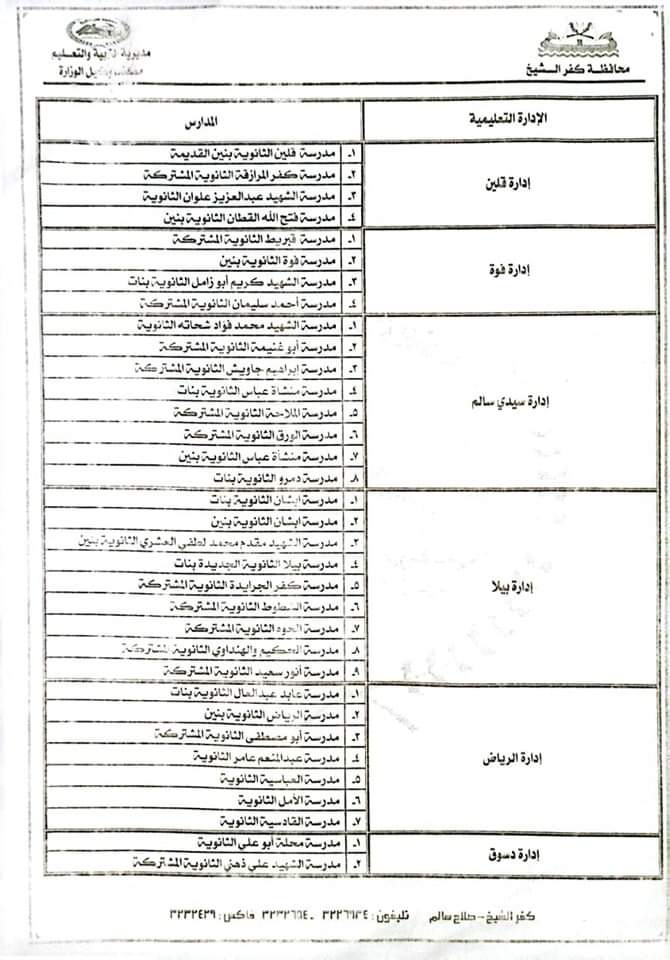 محافظة كفر الشيخ
مديرية التربية والتعليم
مكتب وكيل الوزارة
الإدارة التعليمية
المدارس
إدارة قلين
١ـ مدرسة قلين الثانوية بنين القديمة
٢ـ مدرسة كفر المرازقة الثانوية المشتركة
٣ـ مدرسة الشهيد عبدالعزيز علوان الثانوية
٤ـ مدرسة فتح الله القطان الثانوية بنين
إدارة فوة
١ـ مدرسة قبريط الثانوية المشتركة
٢ـ مدرسة فوة الثانوية بنين
٣ـ مدرسة الشهيد كريم أبو زامل الثانوية بنات
٤ـ مدرسة أحمد سليمان الثانوية المشتركة
إدارة سيدي سالم
١ـ مدرسة الشهيد محمد فؤاد شحاته الثانوية
٢ـ مدرسة أبو غنيمة الثانوية المشتركة
٣ـ مدرسة ابراهيم جاويش الثانوية المشتركة
٤ـ مدرسة منشاة عباس الثانوية بنات
٥ـ مدرسة الملاحة الثانوية المشتركة
٦ـ مدرسة الورق الثانوية المشتركة
٧ـ مدرسة منشأة عباس الثانوية بنين
٨ـ مدرسة دمرو الثانوية بنات
إدارة بيلا
١ـ مدرسة ابشان الثانوية بنات
٢ـ مدرسة ابشان الثانوية بنين
٣ـ مدرسة الشهيد مقدم محمد لطفي العشري الثانوية بنين
٤ـ مدرسة بيلا الثانوية الجديدة بنات
٥ـ مدرسة كفر الجرايدة الثانوية المشتركة
٦ـ مدرسة السطوط الثانوية المشتركة
٧ـ مدرسة الحوه الثانوية المشتركة
٨ـ مدرسة الحكيم والهنداوي الثانوية المشتركة
٩ـ مدرسة أنور سعيد الثانوية المشتركة
إدارة الرياض
١ـ مدرسة عابد عبدالعال الثانوية بنات
٢ـ مدرسة الرياض الثانوية بنين
٣ـ مدرسة أبو مصطفى الثانوية المشتركة
٤ـ مدرسة عبدالمنعم عامر الثانوية
٥ـ مدرسة العباسية الثانوية
٦ـ مدرسة الأمل الثانوية
٧ـ مدرسة القادسية الثانوية
إدارة دسوق
١ـ مدرسة محلة أبو علي الثانوية
٢ـ مدرسة الشهيد علي ذهني الثانوية المشتركة
كفر الشيخ - صلاح سالم تليفون : فاكس : ٣٢٣٢٤٣٩